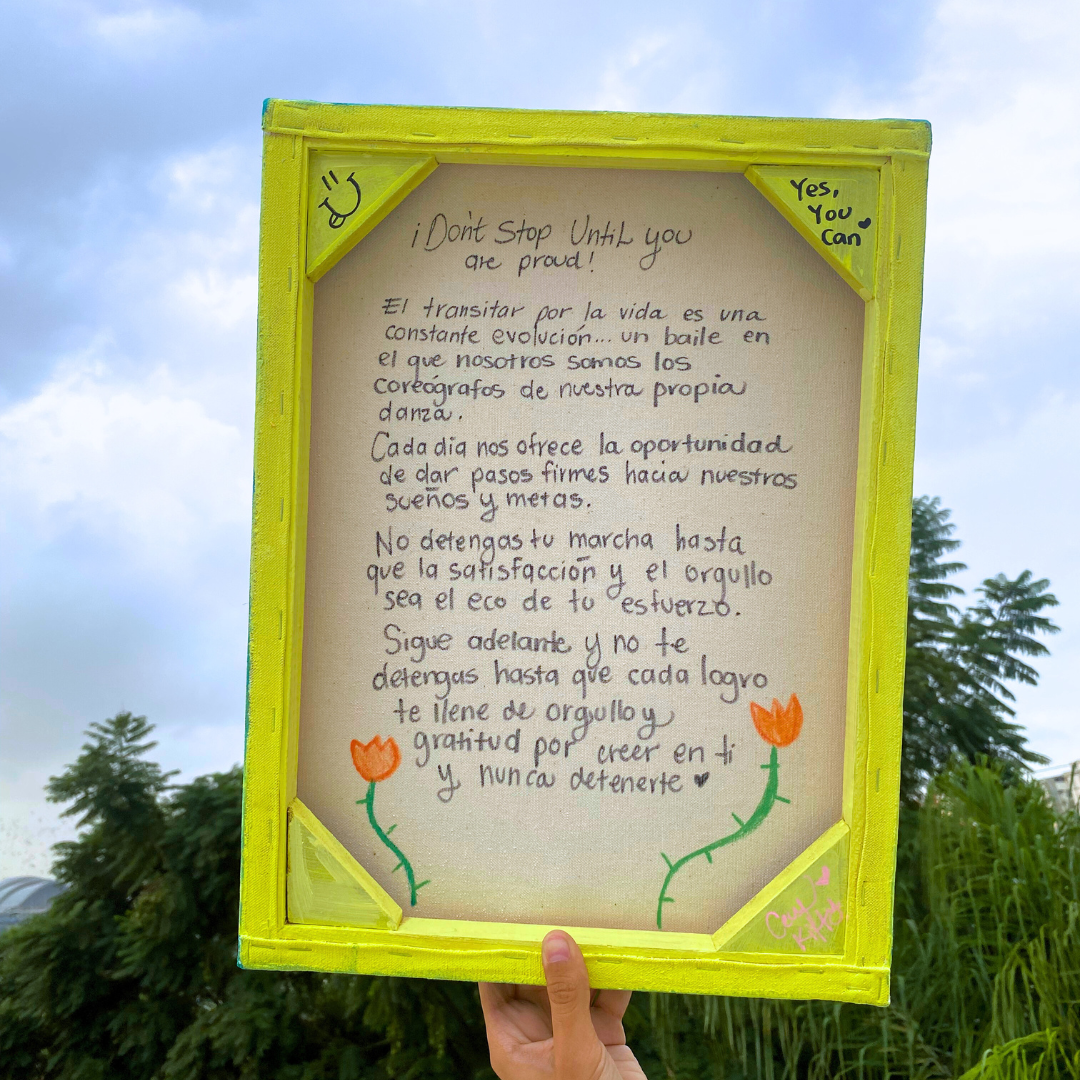 Yes,
You
Can
¡Don't Stop Until you
are proud!
El transitar por la vida es una
constante evolución... un baile en
el que nosotros somos los
coreógrafos de nuestra propia
danza.
Cada dia nos ofrece la oportunidad
de dar pasos firmes hacia nuestros
sueños y metas.
No detengas tu marcha hasta
que la satisfacción y el orgullo
sea el eco de tu esfuerzo.
Sigue adelante y no te
detengas hasta que cada logro
te llene de orgullo y
gratitud por creer en ti
y nunca detenerte